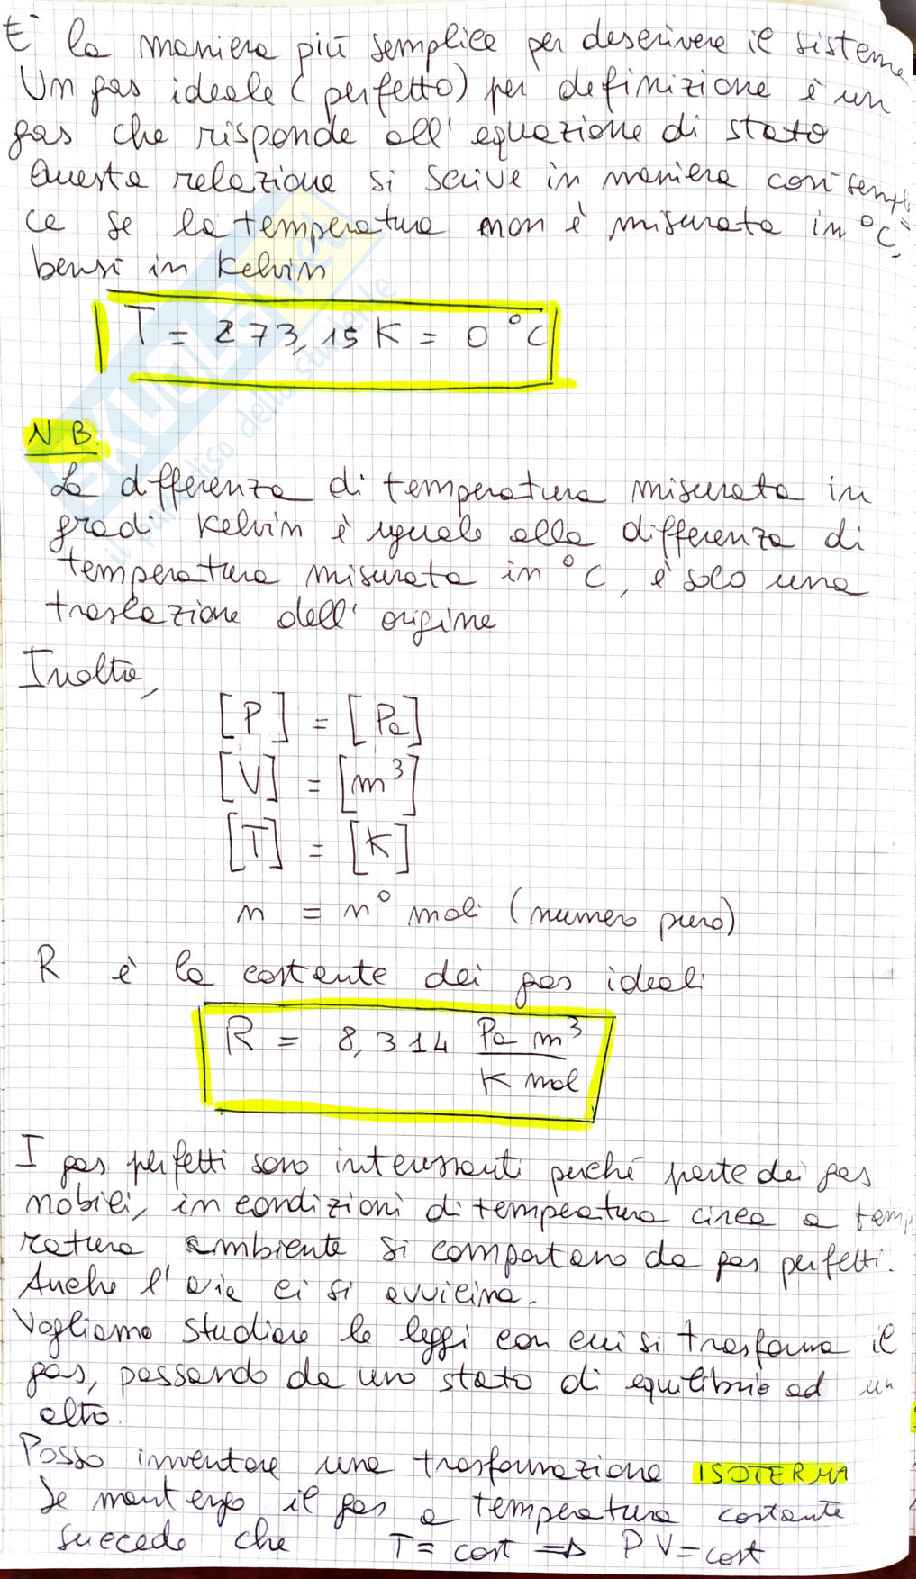 E' la maniera più semplice per descrivere il sistema
Un gas ideale (perfetto) per definizione è un
gas che risponde all' equazione di stato
Questa relazione si scrive in maniera così sempli
ce se la temperatura non è misurata in °C,
bensì in Kelvin
T = 273,15 K = 0 °C
N B.
La differenza di temperatura misurata in
gradi Kelvin è uguale alla differenza di
temperatura misurata in °C, è solo una
traslazione dell' origine
Inoltre,
[P] = [Pa]
[V] = [m³]
[T] = [K]
n = n° moli (numero puro)
R è la costante dei gas ideali
R = 8,314 Pa m³ / K mol
I gas perfetti sono interessanti perché parte dei gas
nobili, in condizioni di temperatura circa a temp
ratura ambiente si comportano da gas perfetti.
Anche l'aria ci si avvicina.
Vogliamo studiare le leggi con cui si trasforma il
gas, passando da uno stato di equilibrio ad un
altro.
Posso inventare una trasformazione ISOTERMA
Se mantengo il gas a temperatura costante
succede che T = cost ⇒ PV = cost
SKUOLA.net
il paradiso dello studente